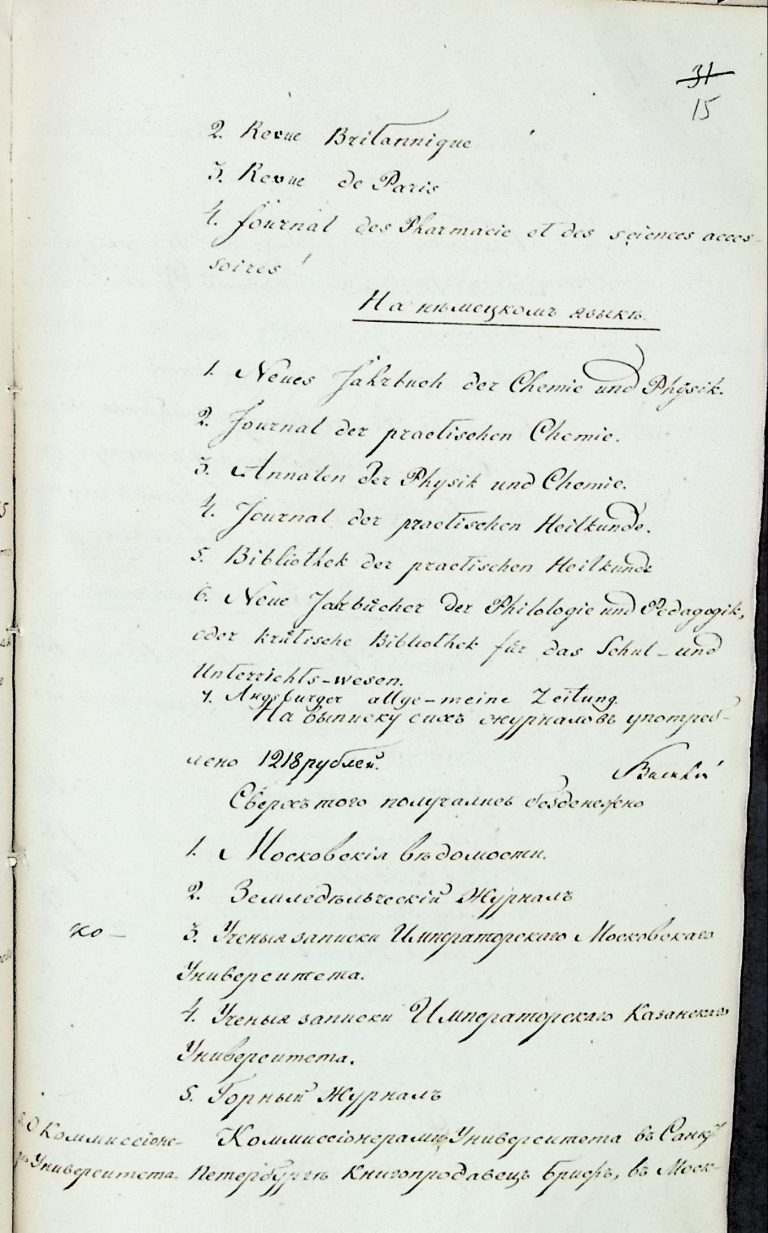 31
15
2. Revue Britannique
3. Revue de Paris
4. Journal des Pharmacie et des sciences acces-
soires
На нѣмецкомъ языкѣ.
1. Neues Jahrbuch der Chemie und Physik.
2. Journal der practischen Chemie.
3. Annalen der Physik und Chemie.
4. Journal der practischen Heilkunde.
5. Bibliothek der practischen Heilkunde
6. Neue Jahrbücher der Philologie und Pedagogik,
oder kritische Bibliothek für das Schul- und
Unterrichts-wesen.
7. Augsburger allge-meine Zeitung.
На выписку сихъ журналовъ употреб-
лено 1218 рублей.
Сверхъ того получались безденежно
1. Московскія вѣдомости.
2. Земледѣльческій Журналъ
ко-
3. Ученыя записки Императорскаго Московскаго
Университета.
4. Ученыя записки Императорскаго Казанскаго
Университета.
5. Горный Журналъ
О Коммиссіоне-
Коммиссіонерами Университета въ Санкт
Университета. Петербургѣ Книгопродавецъ Бриефъ, въ Моск-